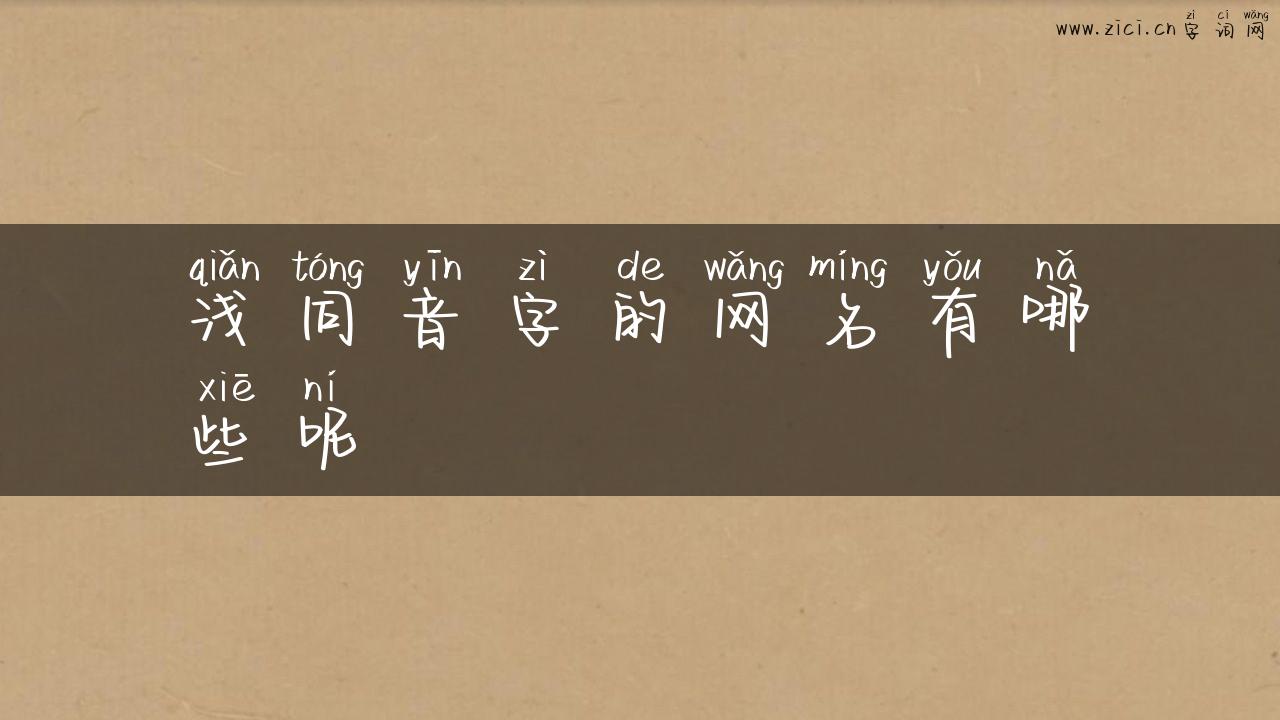 zì cí wǎng
www.zici.cn 字 词 网
qiǎn tóng yīn zì de wǎng míng yǒu nǎ
浅 同 音 字 的 网 名 有 哪
xiē ní
些 呢